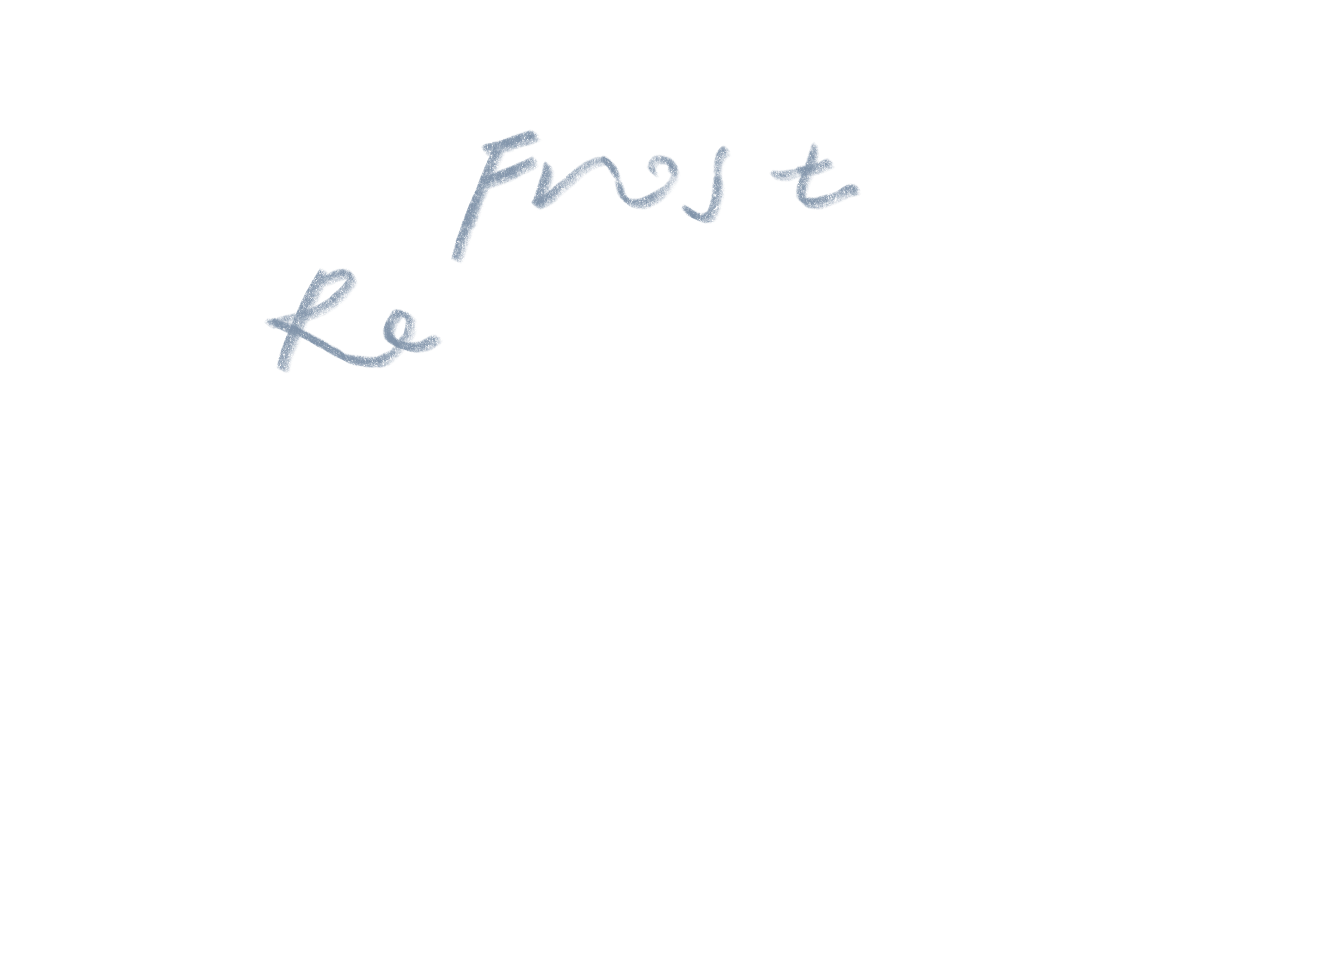 Frost
Re